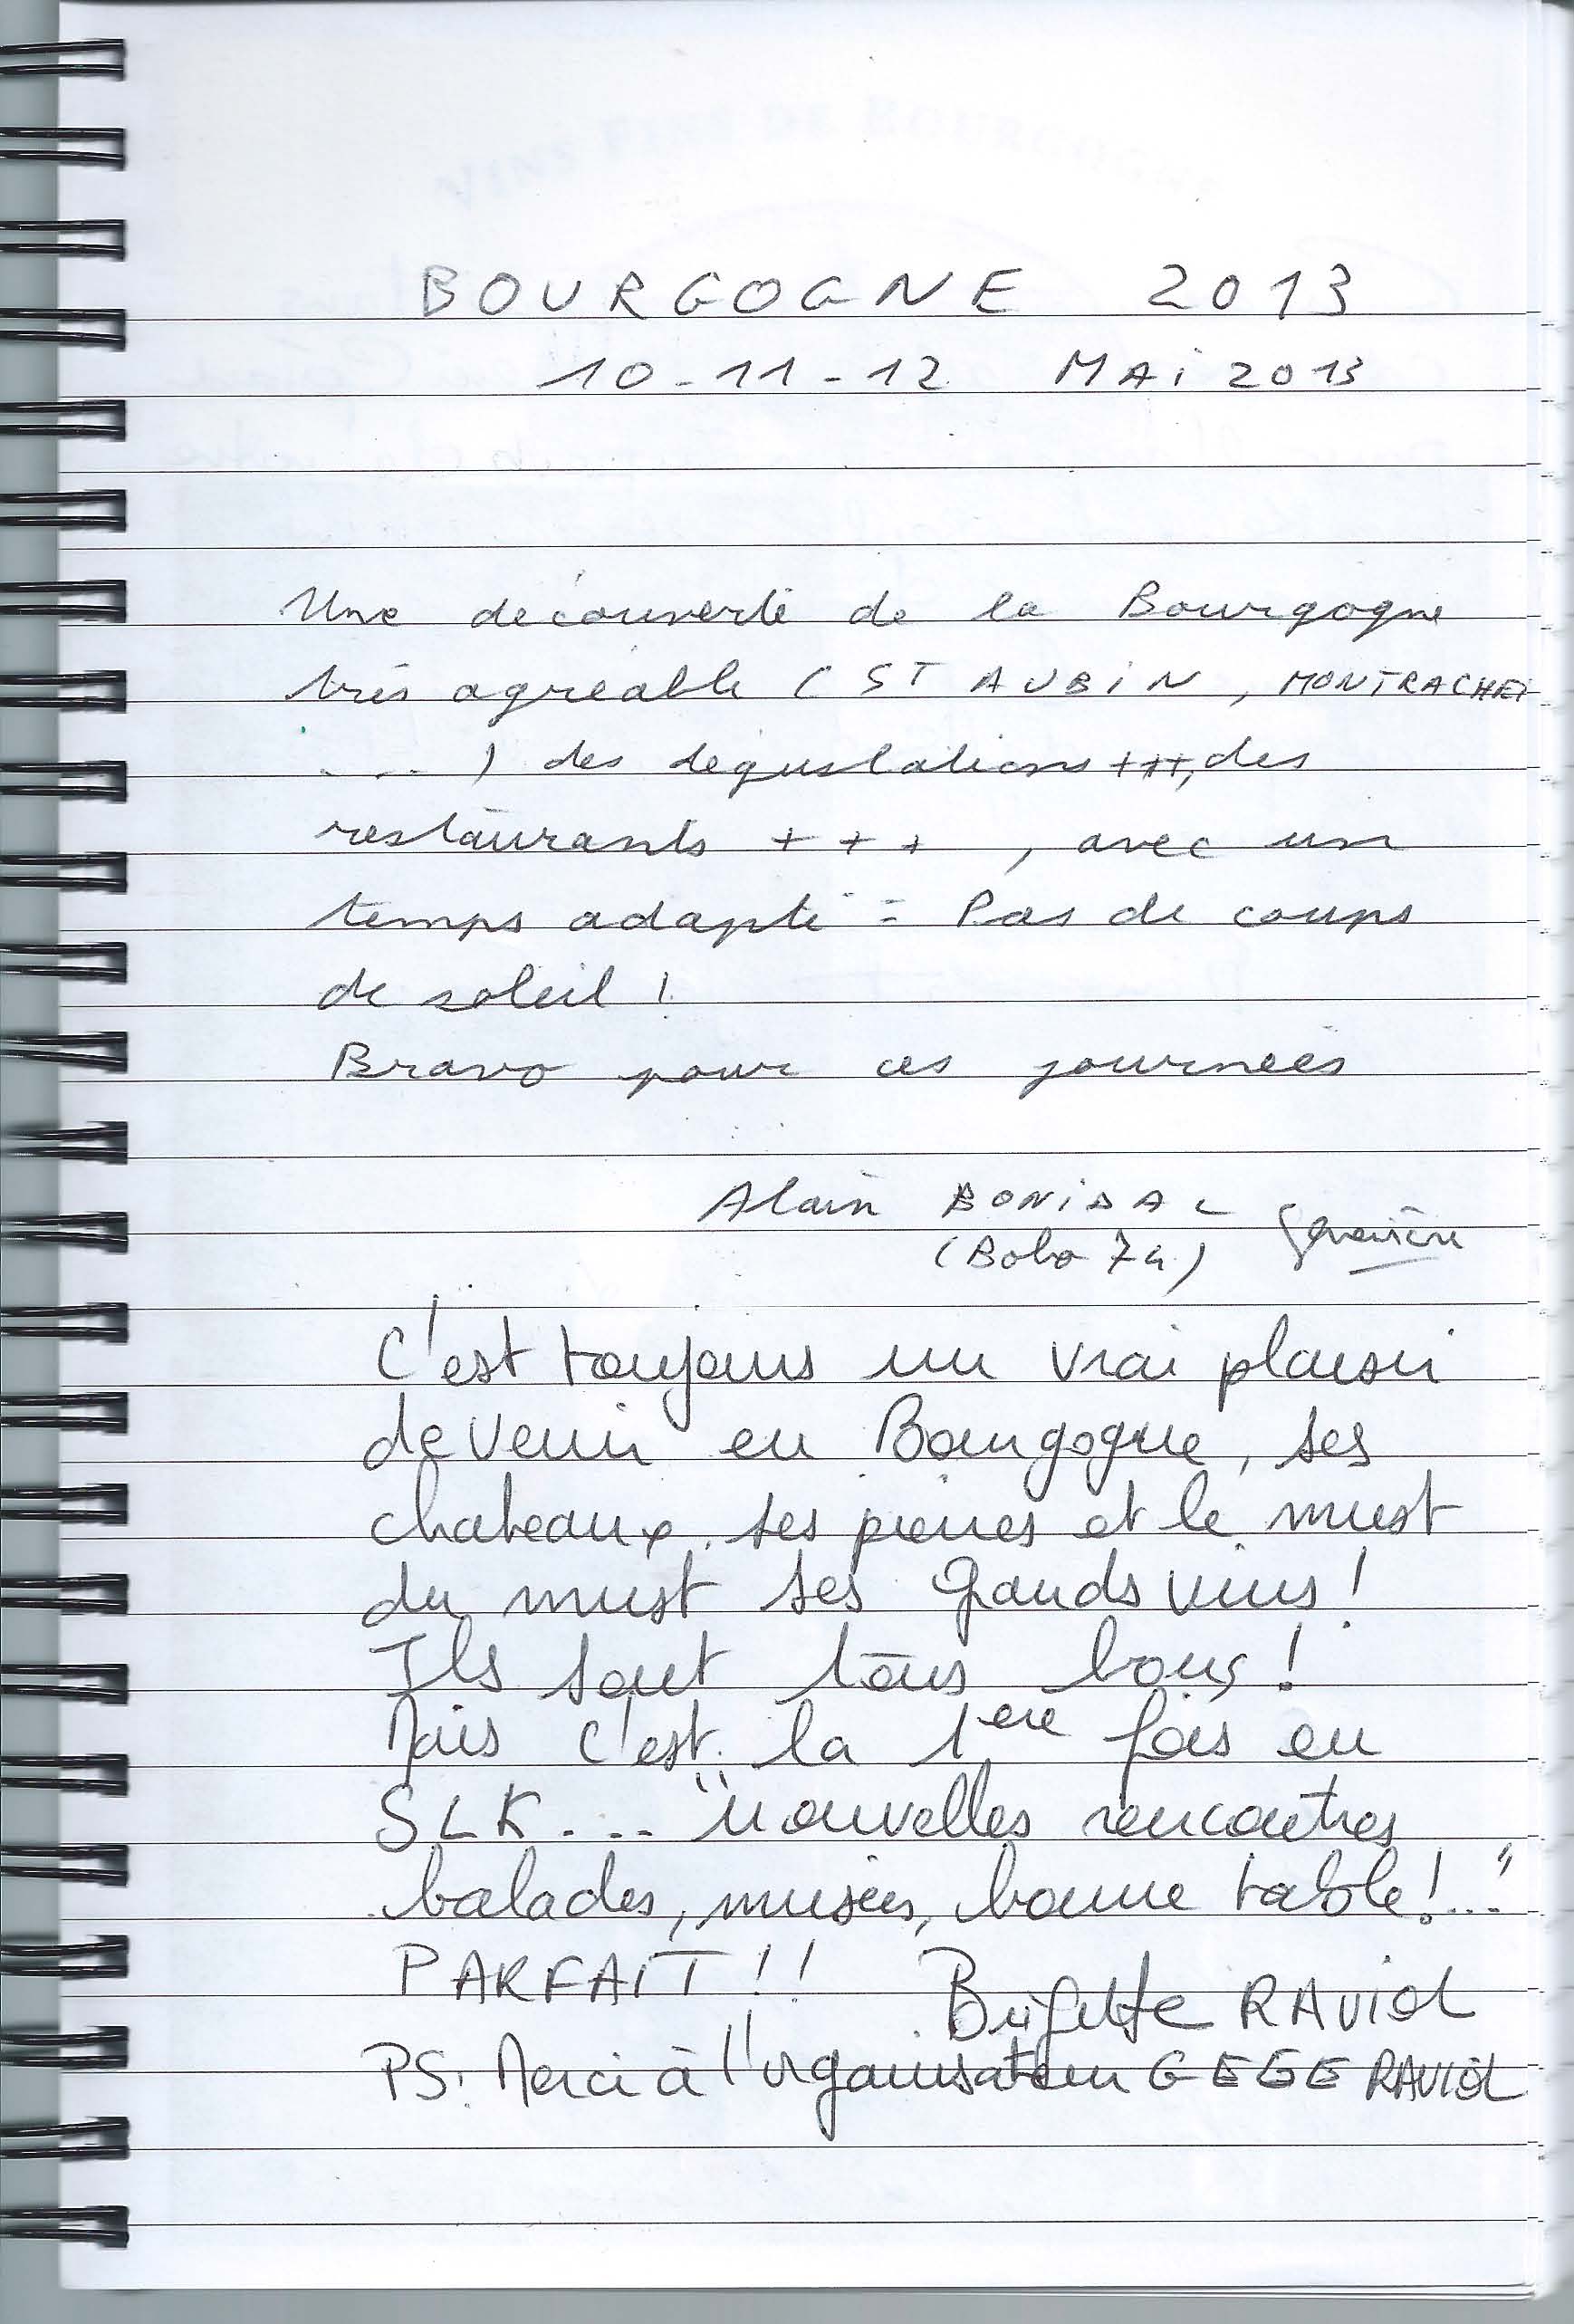 VINS FINS DE BOURGOGNE
BOURGOGNE 2013
10-11-12 MAi 2013
Une découverte de la Bourgogne
très agréable (ST AUBIN, MONTRACHET
....) des dégustations +++, des
restaurants + + +, avec un
temps adapté = Pas de coups
de soleil !
Bravo pour ces journées
Alain BONIDAL Geneviève
(Bobo 74)
C'est toujours un vrai plaisir
de venir en Bourgogne, ses
chateaux, ses pierres et le must
du must ses Grands vins !
Ils sont tous bons !
Mais c'est la 1ere fois en
SLK... "nouvelles rencontres
balades, musées, bonne table !..."
PARFAIT !!
Brigitte RAVIOL
PS: Merci à l'organisateur GEGE RAVIOL